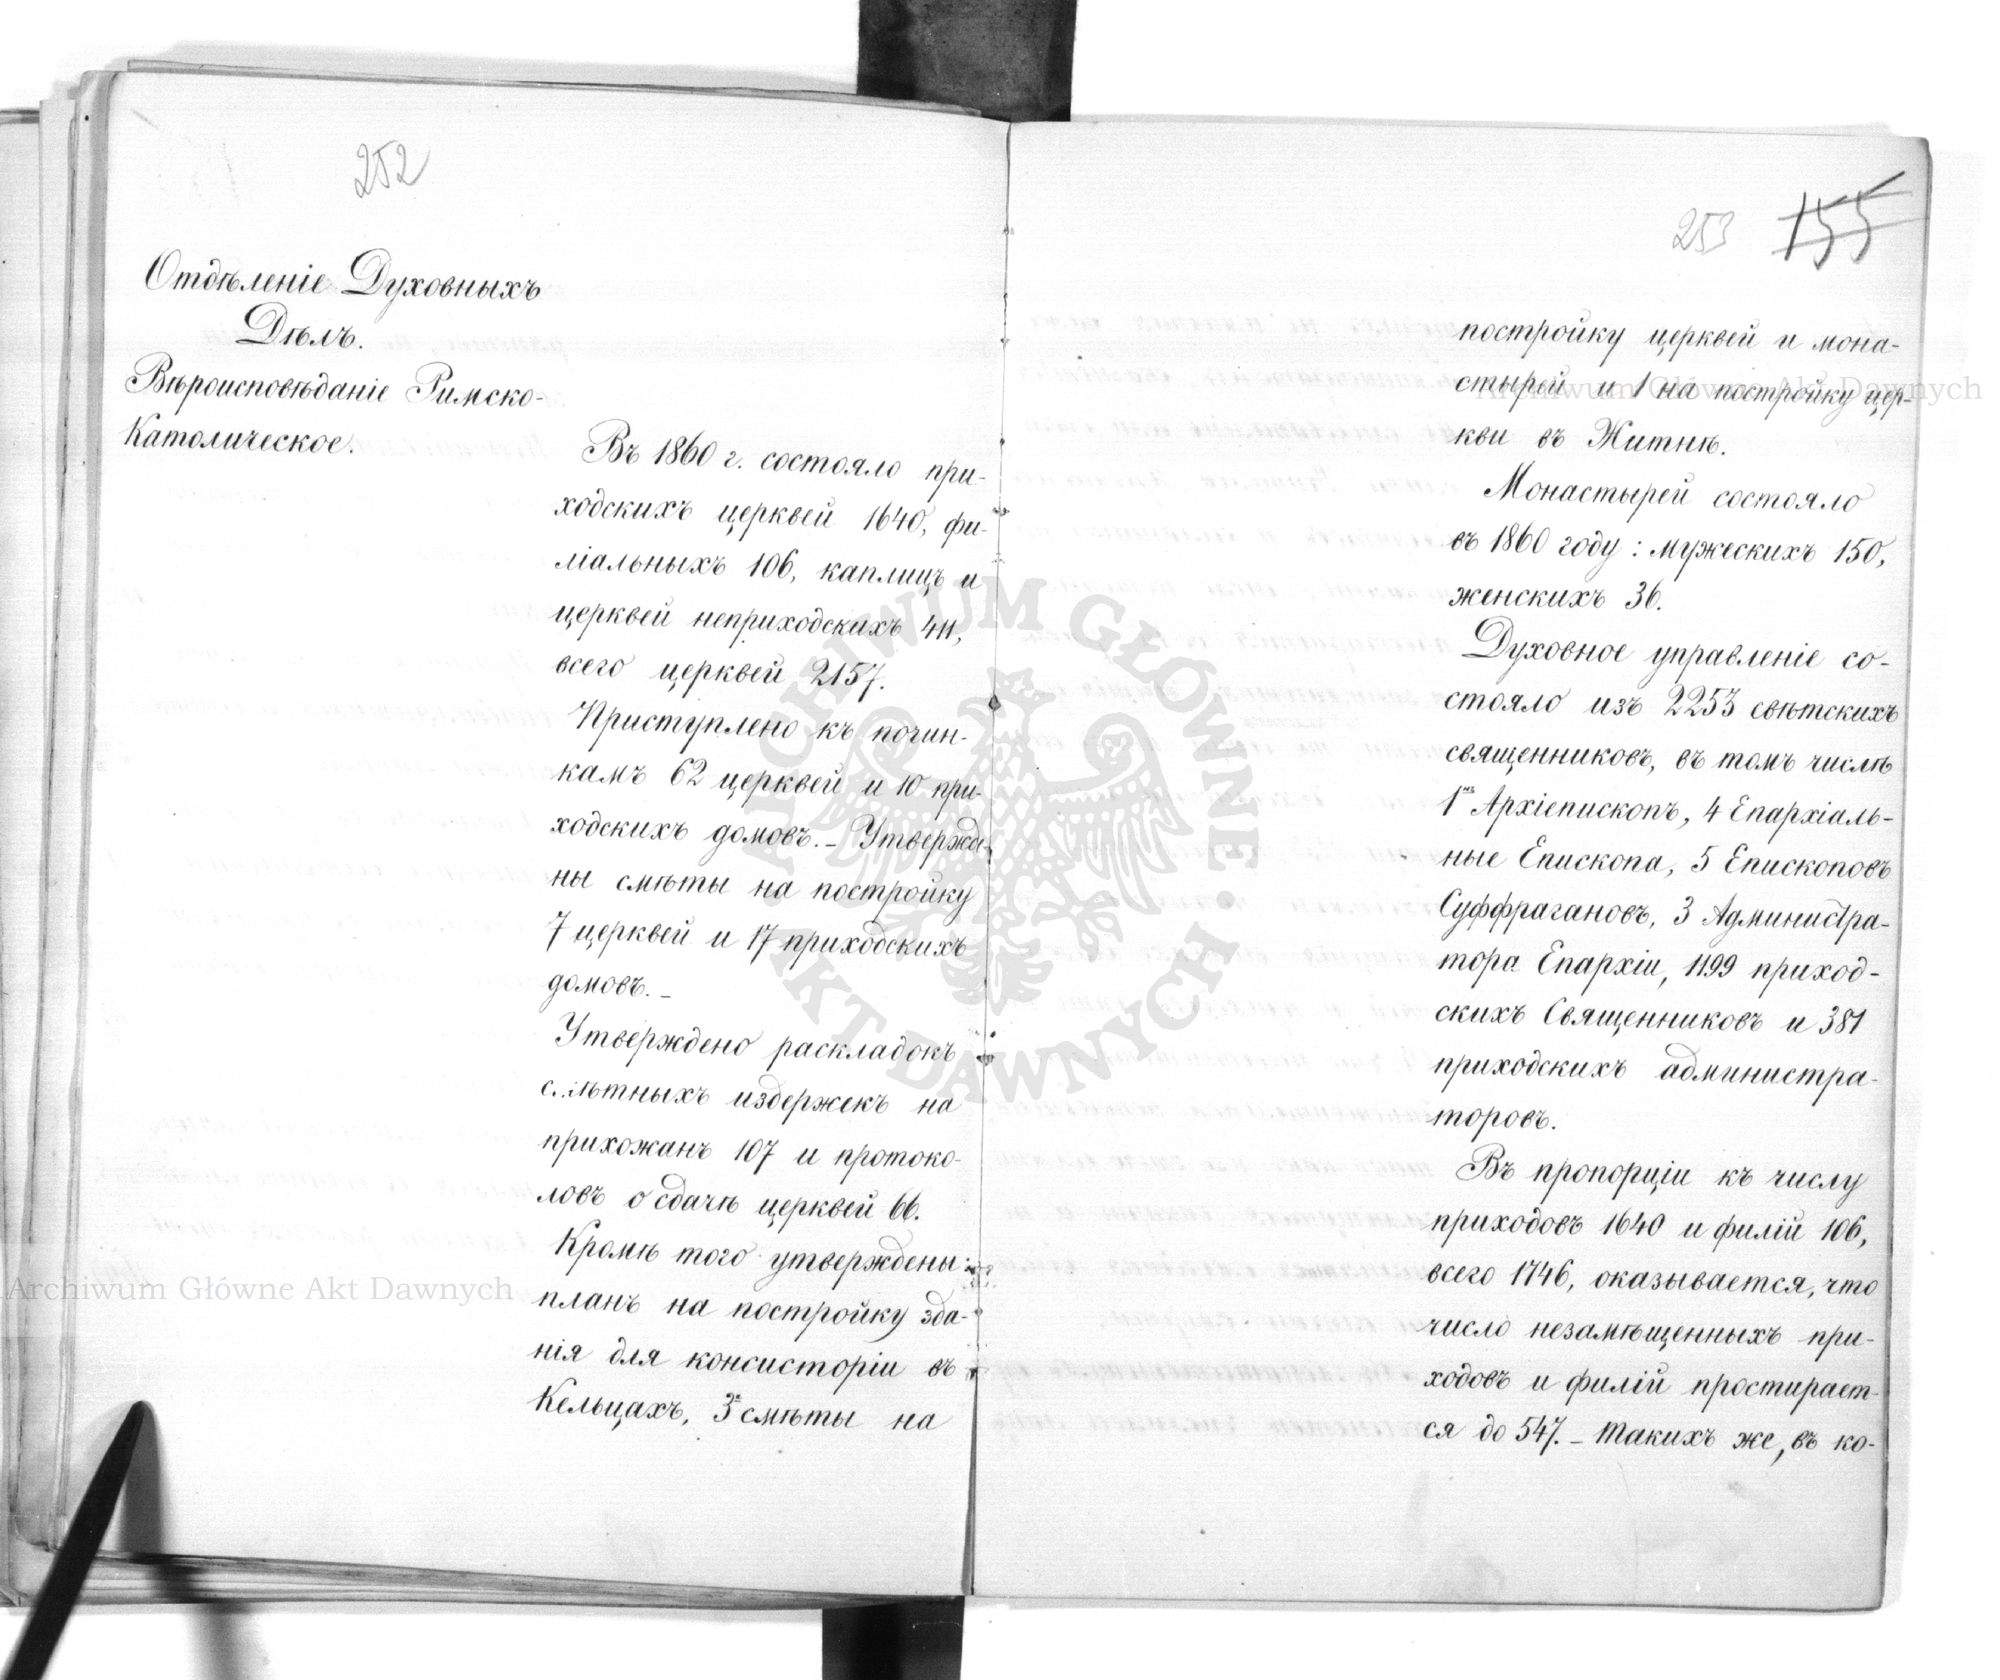 252
Отдѣленіе Духовныхъ
Дѣлъ.
Вѣроисповѣданіе Римско-
Католическое.
Въ 1860 г. состояло при-
ходскихъ церквей 1640, фи-
ліальныхъ 106, каплицъ и
церквей неприходскихъ 411,
всего церквей 2157.
Приступлено къ почин-
камъ 62 церквей и 10 при-
ходскихъ домовъ. – Утвержде-
ны смѣты на постройку
7 церквей и 17 приходскихъ
домовъ. –
Утверждено раскладокъ
смѣтныхъ издержекъ на
прихожанъ 107 и протоко-
ловъ о сдачѣ церквей 66.
Кромѣ того утверждены:
планъ на постройку зда-
нія для консисторіи въ
Кельцахъ, 3 смѣты на
253 155
постройку церквей и мона-
стырей и 1 на постройку цер-
кви въ Житнѣ.
Монастырей состояло
въ 1860 году: мужескихъ 150,
женскихъ 36.
Духовное управленіе со-
стояло изъ 2253 свѣтскихъ
священниковъ, въ томъ числѣ
1нъ Архіепископъ, 4 Епархіаль-
ные Епископа, 5 Епископовъ
Суффрагановъ, 3 Администра-
тора Епархіи, 1199 приход-
скихъ Священниковъ и 381
приходскихъ администра-
торовъ.
Въ пропорціи къ числу
приходовъ 1640 и филій 106,
всего 1746, оказывается, что
число незамѣщенныхъ при-
ходовъ и филій простирает-
ся до 547. – Такихъ же, въ ко-
Archiwum Główne Akt Dawnych
Archiwum Główne Akt Dawnych
ARCHIWUM GŁÓWNE AKT DAWNYCH